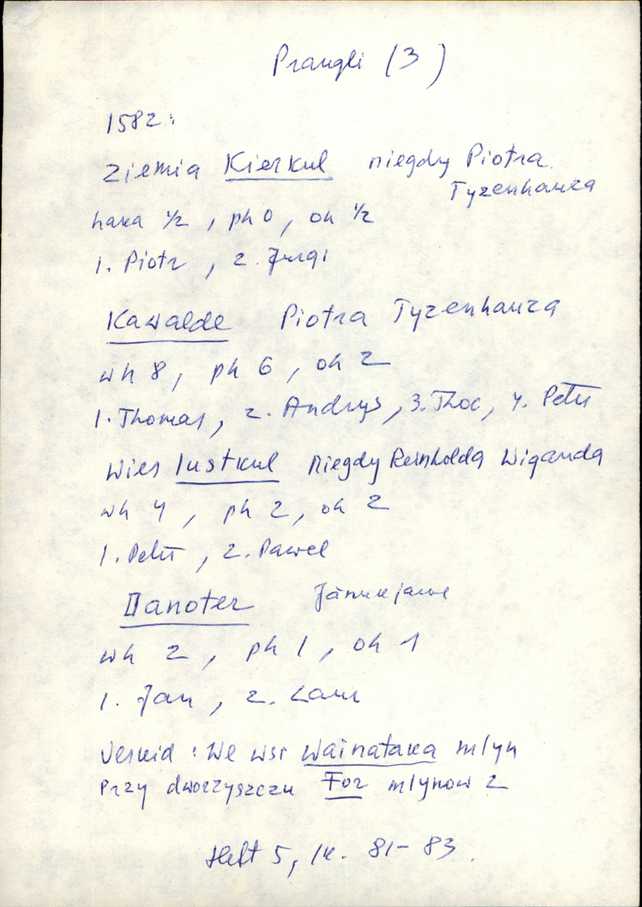 Prangli (3)
1582:
Ziemia Kierkul niegdy Piotra
Tyzenhauza
haka 1/2, ph 0, oh 1/2
1. Piotr, 2. Jurgi
Kawalde Piotra Tyzenhauza
wh 8, ph 6, oh 2
1. Thomas, 2. Andrys, 3. Thoc, 4. Petr
Wies Iustkul niegdy Reinholda Wiganda
wh 4, ph 2, oh 2
1. Petr, 2. Pawel
Danoter
wh 2, ph 1, oh 1
1. Jan, 2. Laur
Veskid: We wsi Wainataka mlyn
Przy dworzyszczu For mlynow 2
Heft 5, lk. 81-83